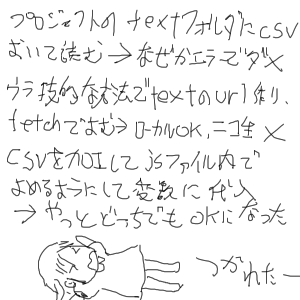 プロジェクトの textフォルダにcsv
おいて読む→なぜかエラーでダメ
ウラ技的な方法でtextのurl作り、
fetchでよむ→ローカルOK,ニコ生 ×
CSVを加工して jsファイル内で
よめるようにして変数に代入
→ やっとどっちでも OKになった
つかれたー